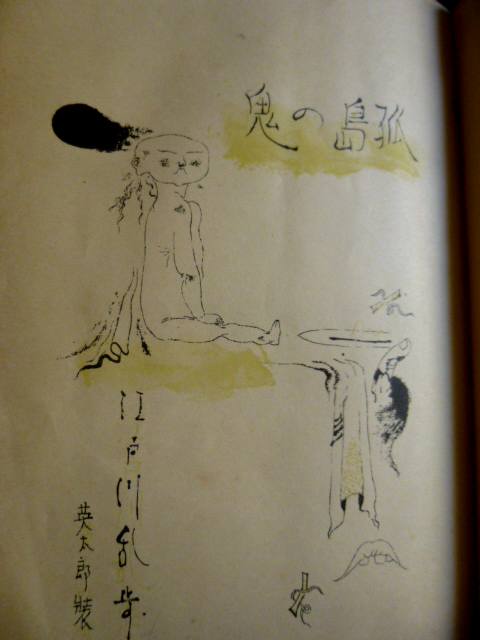 孤島の鬼
江戸川乱歩
英太郎装